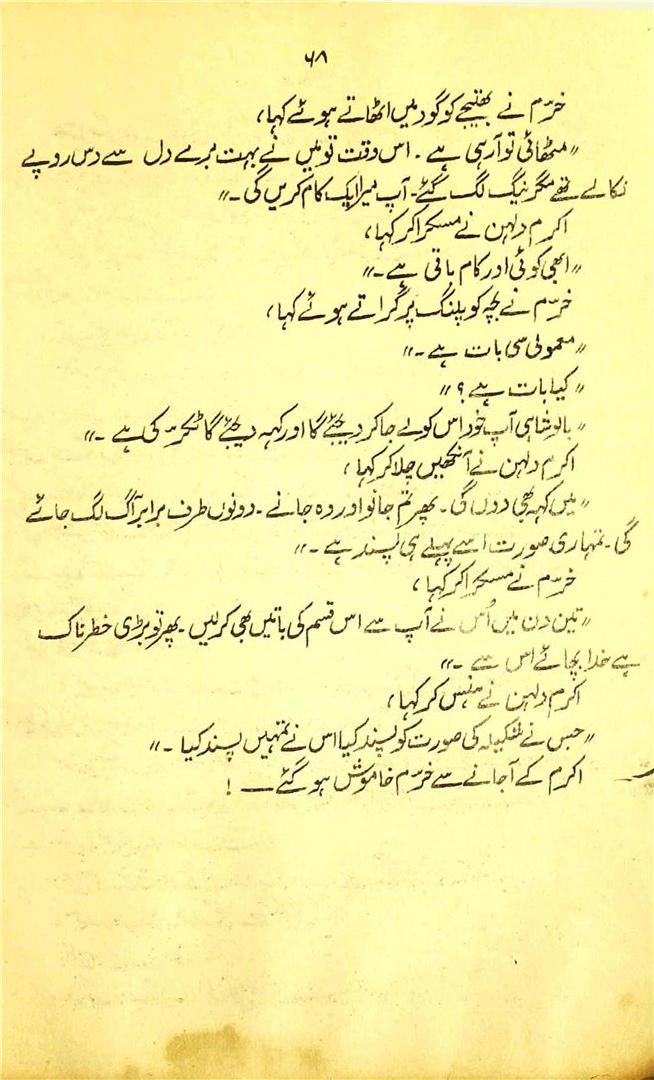 ۶۸
خرّم نے بھتیجے کو گود میں اٹھاتے ہوئے کہا،
"مٹھائی تو آ رہی ہے ۔ اس وقت تو میں نے بہت برے دل سے دس روپے
نکالے تھے مگر نیگ لگ گئے۔ آپ میرا ایک کام کریں گی ۔"
اکرم دلہن نے مسکرا کر کہا،
"ابھی کوئی اور کام باقی ہے ۔"
خرّم نے بچہ کو پلنگ پر گراتے ہوئے کہا،
"معمولی سی بات ہے ۔"
"کیا بات ہے ؟"
"بالوشاہی آپ خود اس کو لے جا کر دیجئے گا اور کہہ دیجئے گا ٹکر کی ہے ۔"
اکرم دلہن نے آنکھیں چلا کر کہا،
"میں کہہ بھی دوں گی ۔ پھر تم جانو اور وہ جانے ۔ دونوں طرف برابر آگ لگ جائے
گی ۔ تمہاری صورت اسے پہلے ہی پسند ہے ۔"
خرّم نے مسکرا کر کہا،
"تین دن میں اُس نے آپ سے اس قسم کی باتیں بھی کر لیں ۔ پھر تو بڑی خطرناک
ہے خدا بچائے اس سے ۔"
اکرم دلہن نے ہنس کر کہا،
"جس نے شکیلہ کی صورت کو پسند کیا اس نے تمہیں پسند کیا ۔"
اکرم کے آ جانے سے خرّم خاموش ہو گئے ۔۔ !